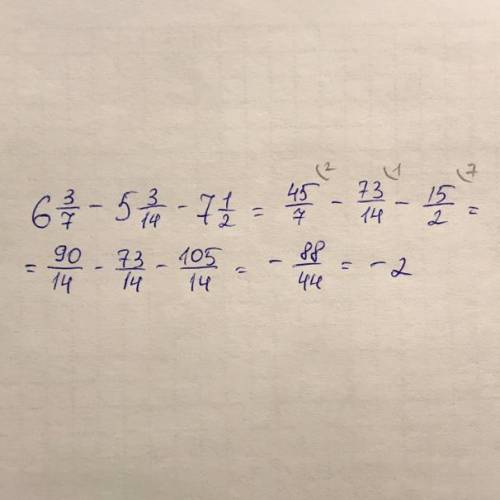 6 3/7 - 5 3/14 - 7 1/2 = 45/7 (2 - 73/14 (1 - 15/2 (7 =
= 90/14 - 73/14 - 105/14 = - 88/44 = - 2